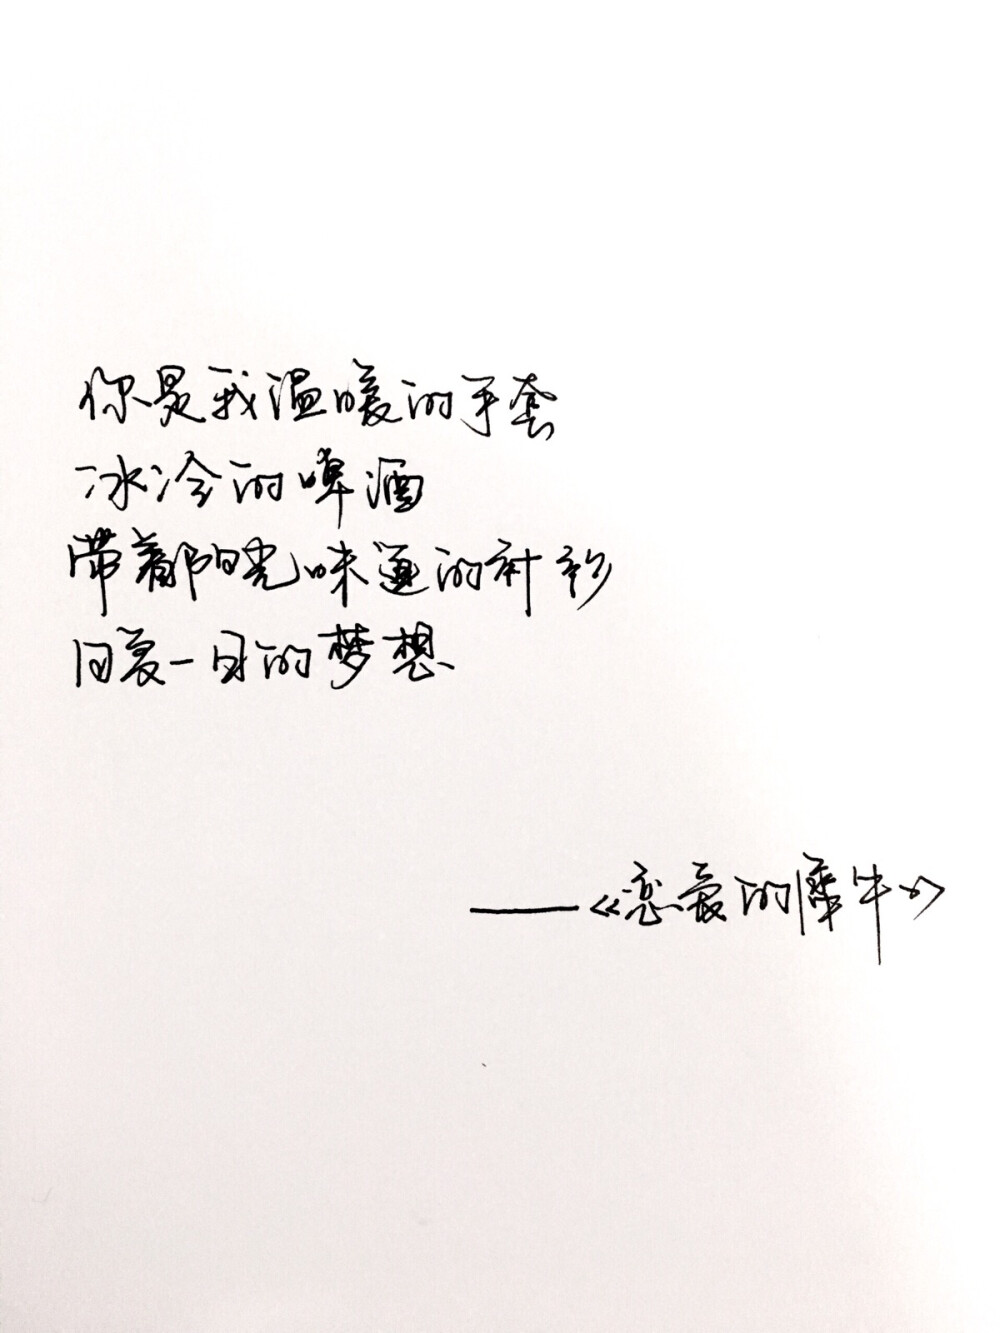 你是我温暖的手套
冰冷的啤酒
带着阳光味道的衬衫
日复一日的梦想
——《恋爱的犀牛》